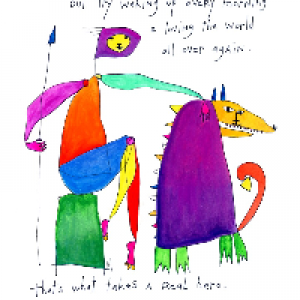 but by waking up every morning
& loving the world
all over again.
that's what takes a real hero.